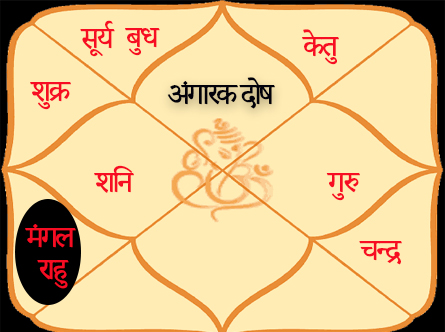 सूर्य बुध
केतु
शुक्र
अंगारक दोष
शनि
गुरु
मंगल
राहु
चन्द्र